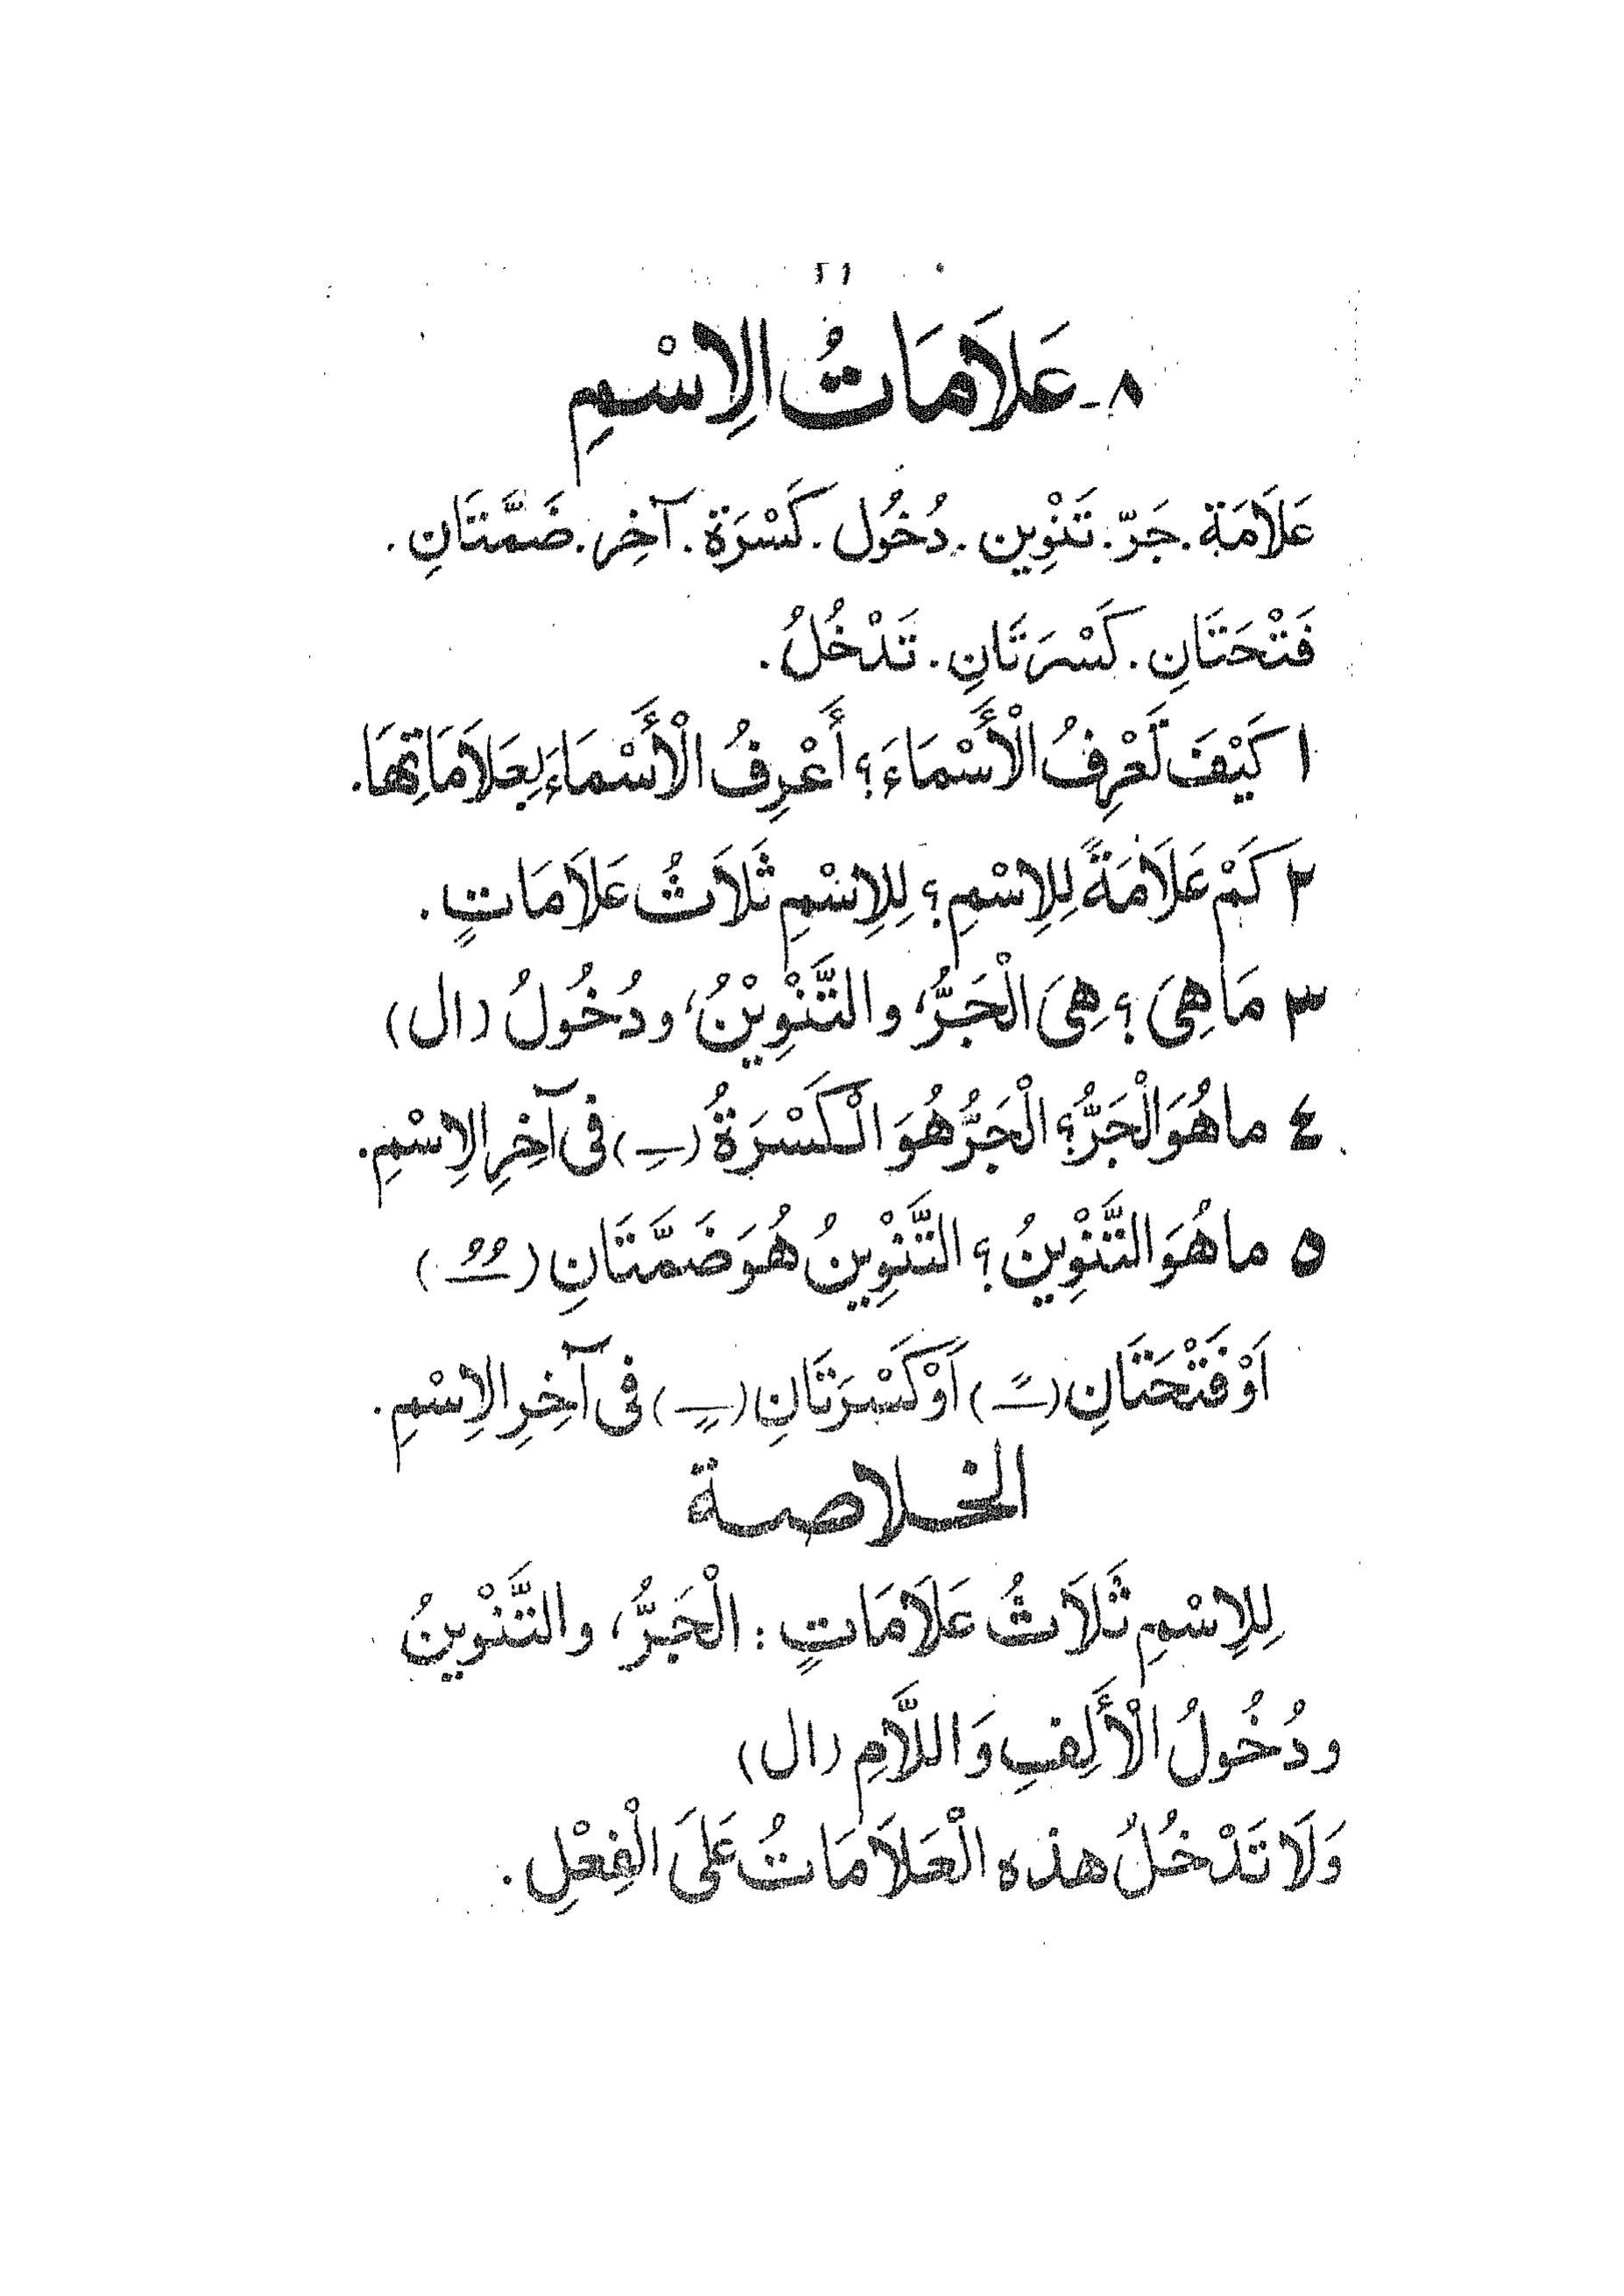 ٨ـ عَلَامَاتُ الِاسْمِ
عَلَامَة. جَرّ. تَنْوِين. دُخُول. كَسْرَة. آخِر. ضَمَّتَانِ.
فَتْحَتَانِ. كَسْرَتَانِ. تَدْخُلُ.
١ كَيْفَ تَعْرِفُ الْأَسْمَاءَ؟ أَعْرِفُ الْأَسْمَاءَ بِعَلَامَاتِهَا.
٢ كَمْ عَلَامَةً لِلِاسْمِ؟ لِلِاسْمِ ثَلَاثُ عَلَامَاتٍ.
٣ مَا هِىَ؟ هِىَ الْجَرُّ، والتَّنْوِيْنُ، ودُخُولُ (ال)
٤ ما هُوَ الْجَرُّ؟ الْجَرُّ هُوَ الْكَسْرَةُ (ـِ) فى آخِرِ الِاسْمِ.
٥ ما هُوَ التَّنْوِينُ؟ التَّنْوِينُ هُوَ ضَمَّتَانِ (ـٌ)
اَوْ فَتْحَتَانِ (ـً) اَوْ كَسْرَتَانِ (ـٍ) فى آخِرِ الِاسْمِ.
الخلاصة
لِلِاسْمِ ثَلَاثُ عَلَامَاتٍ: الْجَرُّ، والتَّنْوِينُ
ودُخُولُ الْأَلِفِ وَاللَّامِ (ال)
وَلَا تَدْخُلُ هذه الْعَلَامَاتُ عَلَى الْفِعْلِ.